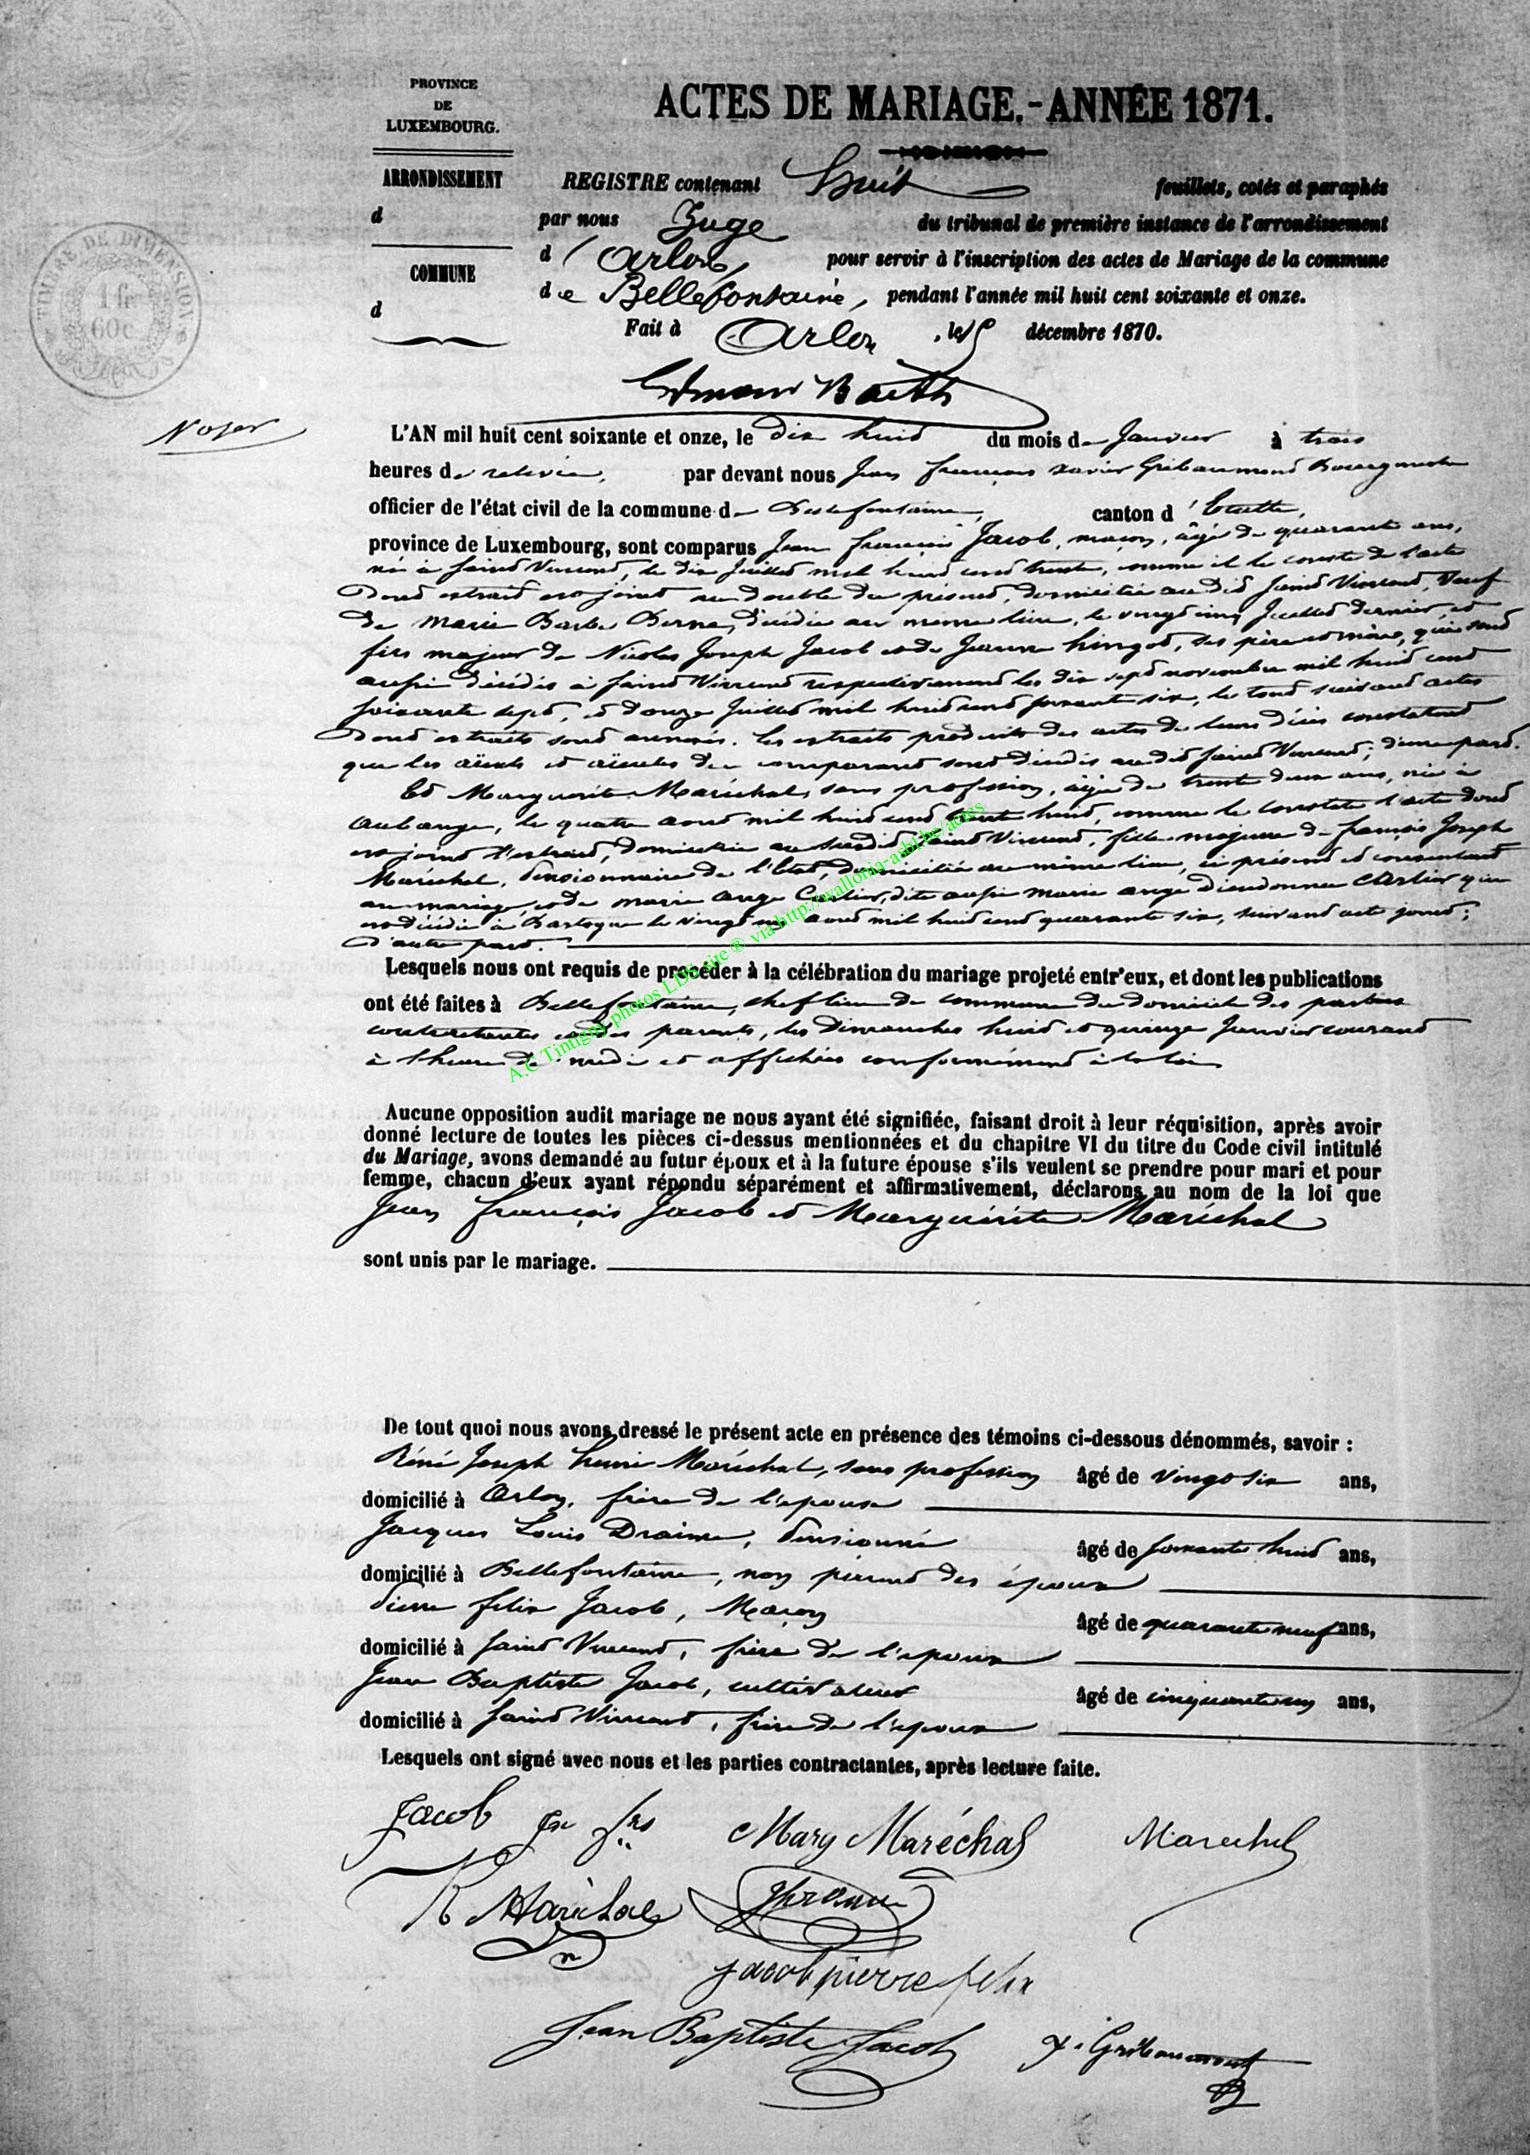 PROVINCE
DE
LUXEMBOURG.
ARRONDISSEMENT
d
COMMUNE
d
TIMBRE DE DIMENSION
1 fr
60c
ACTES DE MARIAGE.-ANNÉE 1871.
REGISTRE contenant huit feuillets, cotés et paraphés
par nous Juge du tribunal de première instance de l'arrondissement
d'Arlon, pour servir à l'inscription des actes de Mariage de la commune
de Bellefontaine, pendant l'année mil huit cent soixante et onze.
Fait à Arlon, le 5 décembre 1870.
Barth
L'AN mil huit cent soixante et onze, le dix huit du mois de Janvier à trois
heures de relevée, par devant nous Jean François Xavier Gribaumont Bourgmestre
officier de l'état civil de la commune de Bellefontaine, canton d'Etalle,
province de Luxembourg, sont comparus Jean François Jacob, maçon, âgé de quarante ans,
né à Saint Vincent, le dix Juillet mil huit cent trente, comme il le conste de l'acte
dont extrait est joint au double du présent, domicilié au dit Saint Vincent, veuf
de Marie Barbe Berna, décédée au même lieu, le vingt cinq Juillet dernier, et
fils majeur de Nicolas Joseph Jacob et de Jeanne hingot, ses père et mère, qui sont
aussi décédés à Saint Vincent respectivement les dix sept novembre mil huit cent
soixante sept, et douze Juillet mil huit cent soixante six, le tout suivant actes
dont extraits sont annexés. Les extraits produits des actes de leurs décès constatent
que les aïeuls et aïeules du comparant sont décédés au dit Saint Vincent; d'une part.
Et Marguerite Maréchal, sans profession, âgée de trente deux ans, née à
Aubange, le quatre août mil huit cent trente huit, comme le constate l'acte dont
est joint l'extrait, domiciliée au susdit Saint Vincent, fille majeure de François Joseph
Maréchal, Pensionnaire de l'Etat, domicilié au même lieu, ci présent et consentant
au mariage, et de Marie Ange Cartier, dite aussi Marie Ange Dieudonnée Cartier qui
est décédée à Bastogne le vingt un août mil huit cent quarante six, suivant acte joint;
d'autre part.
Lesquels nous ont requis de procéder à la célébration du mariage projeté entr'eux, et dont les publications
ont été faites à Bellefontaine, chef lieu de commune du domicile des parties
contractantes et des parents, les Dimanches huit et quinze Janvier courant
à l'heure de midi et affichées conformément à la loi
Aucune opposition audit mariage ne nous ayant été signifiée, faisant droit à leur réquisition, après avoir
donné lecture de toutes les pièces ci-dessus mentionnées et du chapitre VI du titre du Code civil intitulé
du Mariage, avons demandé au futur époux et à la future épouse s'ils veulent se prendre pour mari et pour
femme, chacun d'eux ayant répondu séparément et affirmativement, déclarons au nom de la loi que
Jean François Jacob et Marguérite Maréchal
sont unis par le mariage.
De tout quoi nous avons dressé le présent acte en présence des témoins ci-dessous dénommés, savoir :
Réné Joseph Henri Maréchal, sans profession âgé de vingt six ans,
domicilié à Arlon, frère de l'épouse
Jacques Louis Draime, Pensionné âgé de soixante huit ans,
domicilié à Bellefontaine, non parent des époux
Pierre Félix Jacob, Maçon âgé de quarante neuf ans,
domicilié à Saint Vincent, frère de l'époux
Jean Baptiste Jacob, cultivateur âgé de cinquante un ans,
domicilié à Saint Vincent, frère de l'époux
Lesquels ont signé avec nous et les parties contractantes, après lecture faite.
Jacob Jn frs Mary Maréchal Marechal
R Maréchal
jacob pierre felix
Jean Baptiste Jacob X. Gribaumont
A.C Tintigny photos LDS site ® via http://wallonia-asbl.be/actes